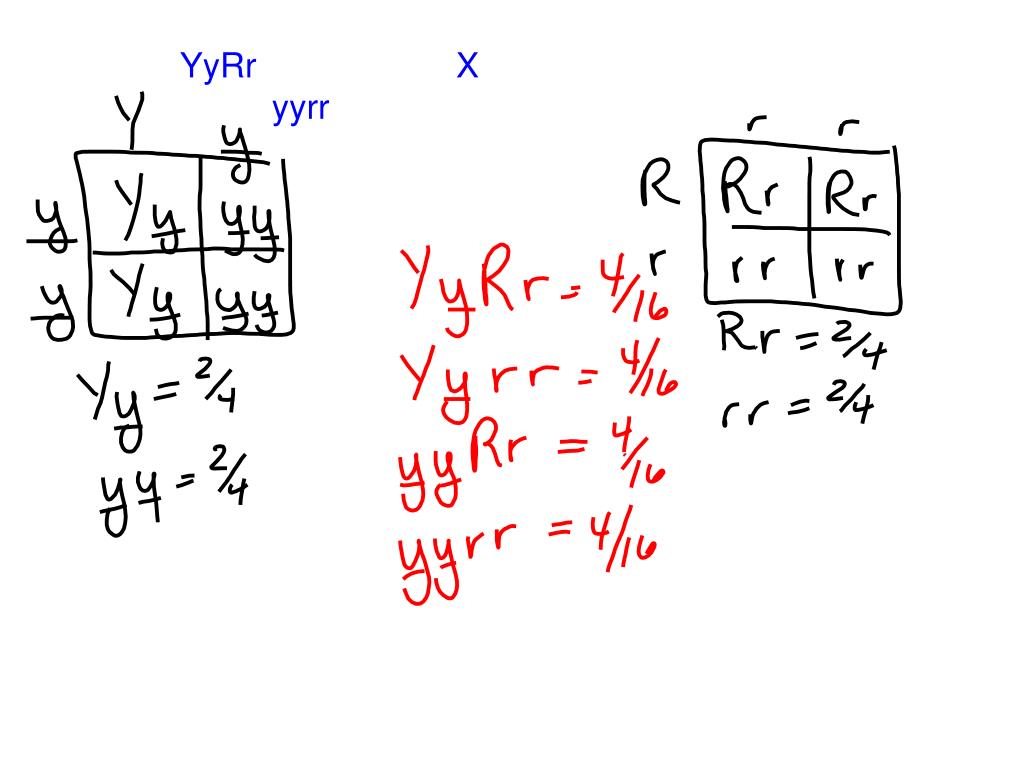 YyRr X
yyrr
Y y
y Yy yy
y Yy yy
Yy = 2/4
yy = 2/4
YyRr = 4/16
Yyrr = 4/16
yyRr = 4/16
yyrr = 4/16
r r
R Rr Rr
r rr rr
Rr = 2/4
rr = 2/4